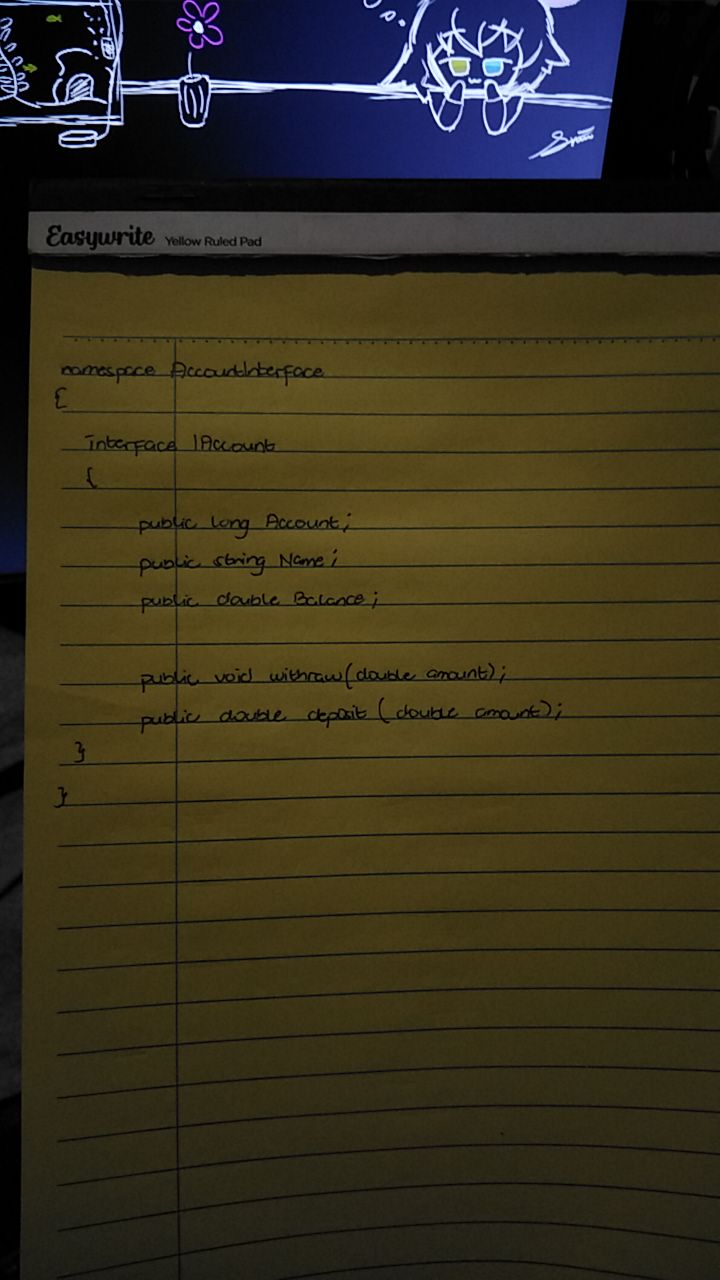 Easywrite Yellow Ruled Pad
namespace AccountInterface
{
interface IAccount
{
public long Account;
public string Name;
public double Balance;
public void withraw(double amount);
public double deposit (double amount);
}
}